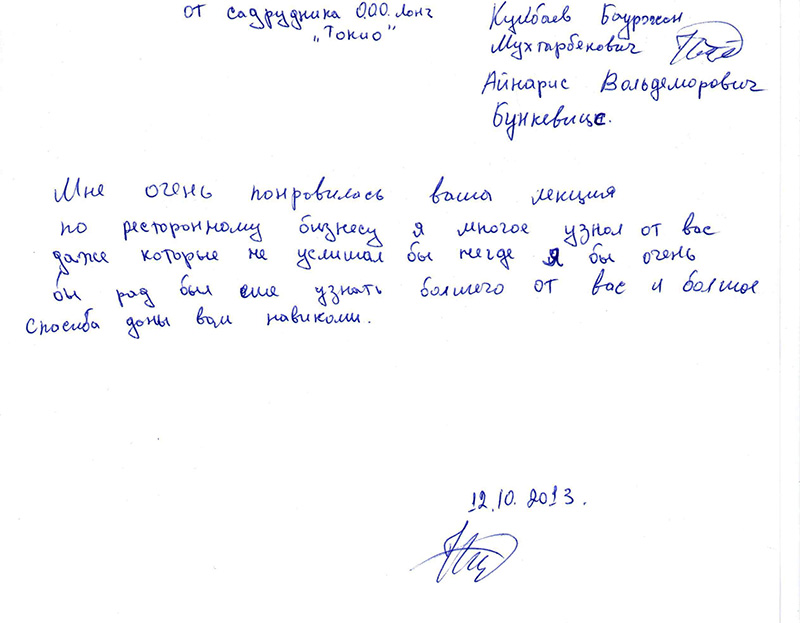 от садрудника ООО. Лонг
„Токио"
Кулбаев Бауржан
Мухтарбекович
Айнарис Вольдеморович
Бункевицс.
Мне очень понровилось ваша лекция
по ресторонному бизнесу я многое узнал от вас
даже которые не услишал бы негде я бы очень
бы рад был еше узнать болшего от вас и болшое
Спосиба доны вам навиками.
12.10. 2013.